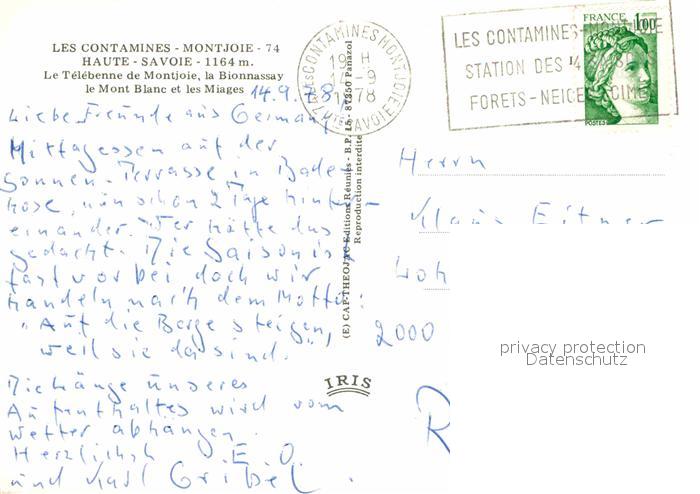 LES CONTAMINES - MONTJOIE - 74
HAUTE - SAVOIE - 1164 m.
Le Télébenne de Montjoie, la Bionnassay
le Mont Blanc et les Miages
14.9.78
Liebe Freunde aus Germany
Mittagessen auf der
Sonnen-Terrasse in Bade-
hose, nun schon 2 Tage hinter-
einander. Wer hätte das
gedacht. Die Saison is
fast vorbei doch wir
handeln nach dem Motto:
"Auf die Berge steigen,
weil sie da sind."
Die Länge unseres
Aufenthaltes wird vom
Wetter abhängen.
Herzlichst E. O.
und Karl
(E) CAP-THEOJAC Editions Réunies - B.P. 15 - 87350 Panazol
Reproduction interdite
IRIS
LES CONTAMINES MONTJOIE
18 H
14-9
1978
HTE SAVOIE
LES CONTAMINES-MONTJOIE
STATION DES
FORETS-NEIGE-CIMES
FRANCE 1,00
POSTES
Herrn
Klaus Eitner
Loh
2000
R
privacy protection
Datenschutz